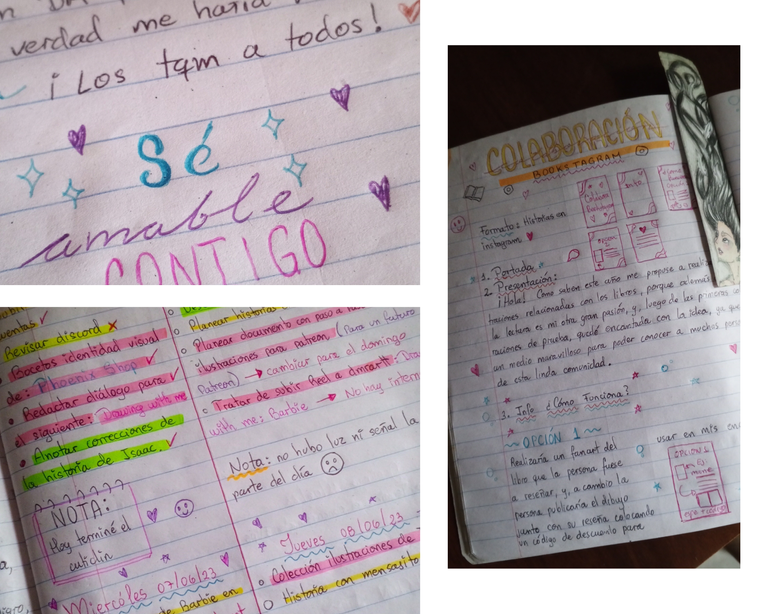 verdad me haría
¡Los tqm a todos!
Sé
amable
CONTIGO
Revisar discord
Bocetos identidad visual
de: Phoenix Shop
Redactar diálogo para
el siguiente: Drawing with me
Anotar correcciones de
la historia de Isaac.
NOTA:
Hoy terminé el
Miércoles 07/06/23
Planear historias
Planear documento con paso a
ilustraciones para patreon (Para un futuro
Patreon) → cambiar para el domingo
Tratar de subir Reel a
with me: Barbie → No hay intern
Nota: no hubo luz ni señal la
parte del día
Jueves 08/06/23
Colección ilustraciones de
Historia con mensajito
Barbie en
COLABORACIÓN
BOOKSTAGRAM
Formato: Historias en
instagram
1. Portada
2. Presentación:
¡Hola! Cómo saben este año me propuse a
traciones relacionadas con los libros, porque además
la lectura es mi otra gran pasión, y, luego de las primeras
raciones de prueba, quedé encantada con la idea, ya que
un medio maravilloso para poder conocer a muchas
de esta linda comunidad.
3. Info ¿Cómo Funciona?
OPCIÓN 1
Realizaría un fanart del
libro que la persona fuese
a reseñar, y, a cambio la
persona publicaría el dibujo
junto con su reseña colocando
un código de descuento para
usar en mis
OPCIÓN 1